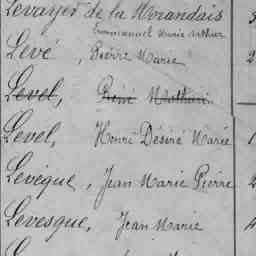 Levayer de la Morandais
Emmanuel Marie Arthur
Levé, Pierre Marie 2
Level, René Mathurin
Level, Henri Désiré Marie 1
Levêque, Jean Marie Pierre 2
Levesque, Jean Marie 4